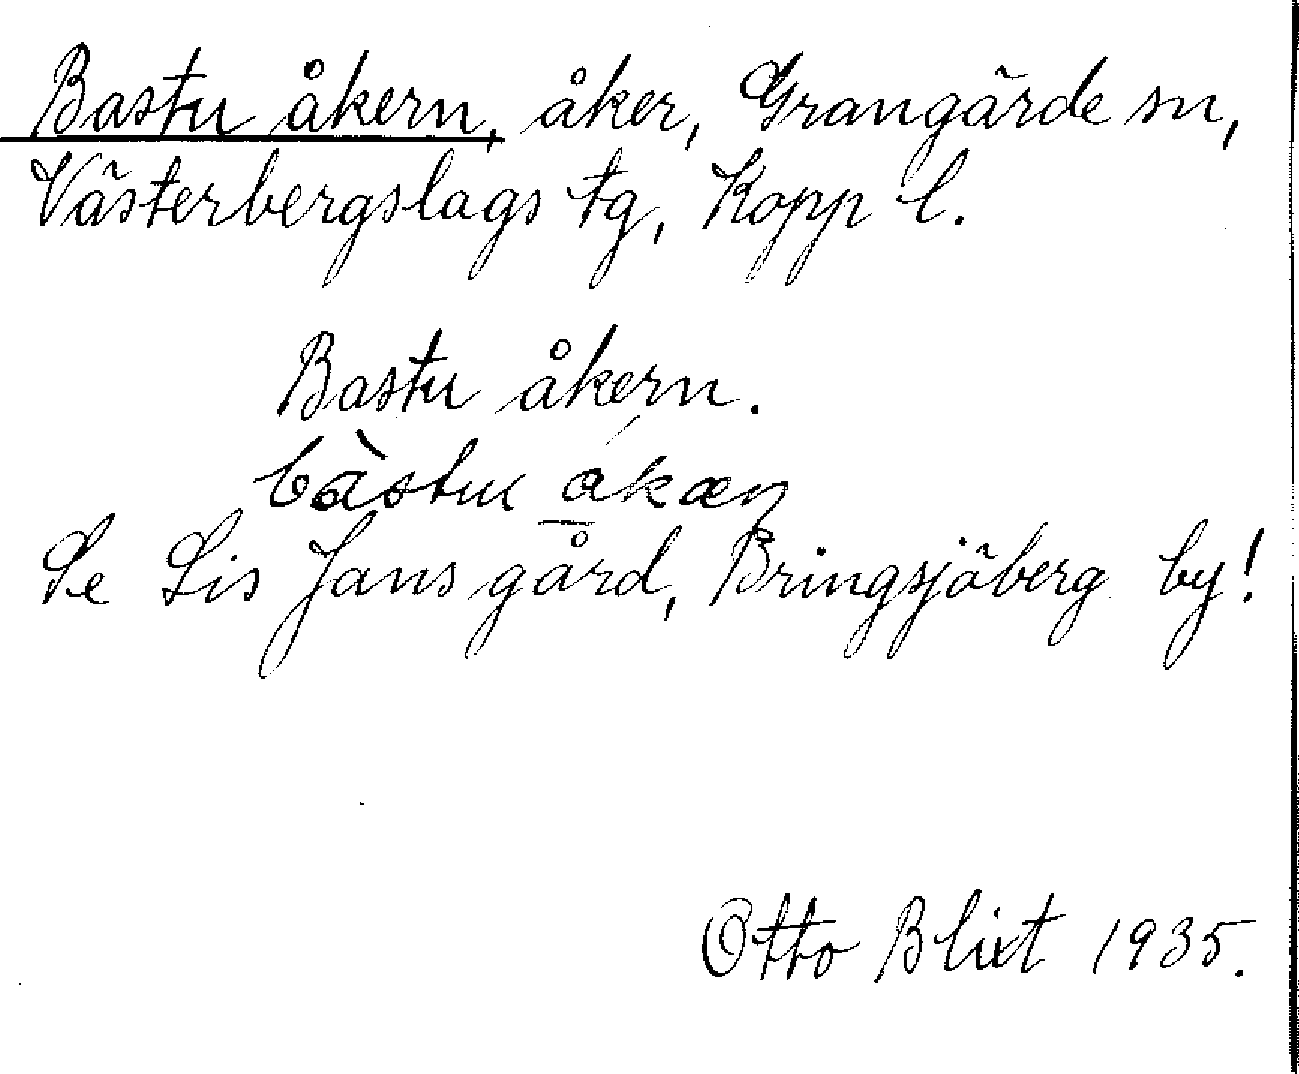 Bastu åkern, åker, Grangärde sn,
Västerbergslags tg, Kopp l.
Bastu åkern.
bàstu ákæn
Se Lis Jans gård, Bringsjöberg by!
Otto Blixt 1935.